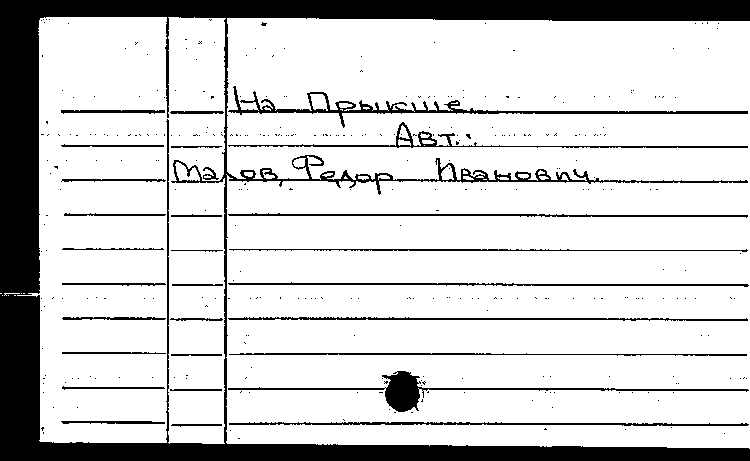 На Прыкше.
Авт.:
Малов, Федор Иванович.